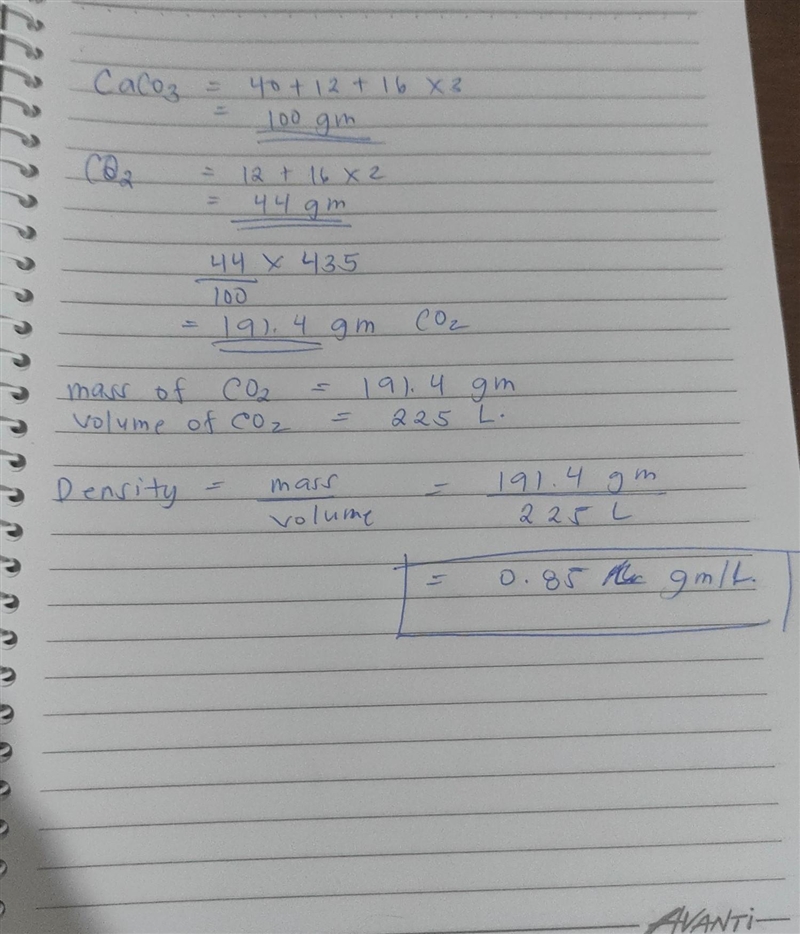 CaCo3 = 40 + 12 + 16 × 3
= 100 gm
CO2 = 12 + 16 × 2
= 44 gm
44/100 × 435
= 191.4 gm CO2
mass of CO2 = 191.4 gm
volume of CO2 = 225 L.
Density = mass/volume = 191.4 gm/225 L
= 0.85 gm/L.
AVANTi